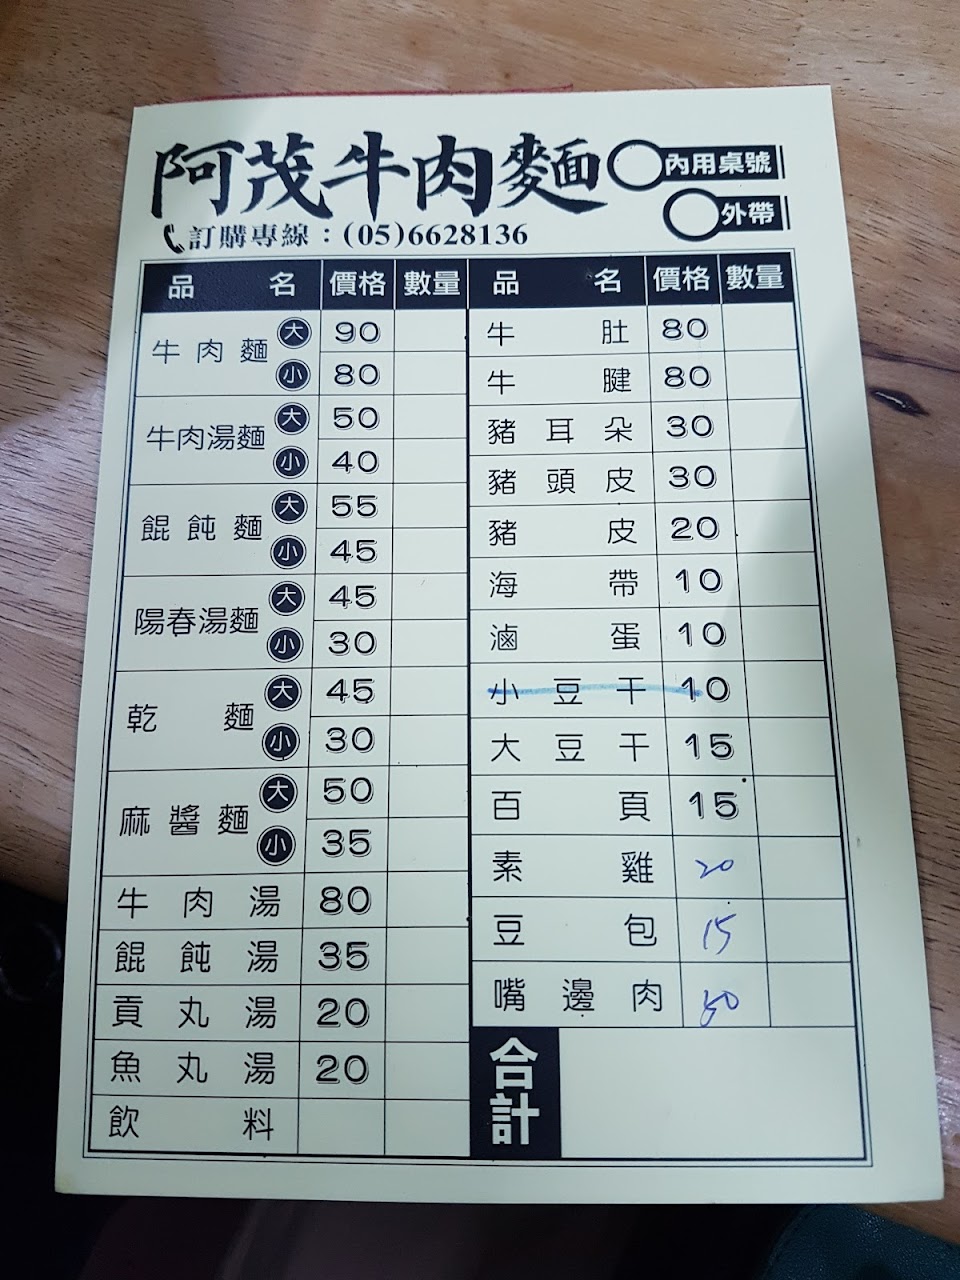 阿茂牛肉麵
內用桌號
外帶
訂購專線：(05)6628136
品名 價格 數量
牛肉麵 大 90
小 80
牛肉湯麵 大 50
小 40
餛飩麵 大 55
小 45
陽春湯麵 大 45
小 30
乾麵 大 45
小 30
麻醬麵 大 50
小 35
牛肉湯 80
餛飩湯 35
貢丸湯 20
魚丸湯 20
飲料
品名 價格 數量
牛肚 80
牛腱 80
豬耳朵 30
豬頭皮 30
豬皮 20
海帶 10
滷蛋 10
小豆干 10
大豆干 15
百頁 15
素雞 20
豆包 15
嘴邊肉
合計